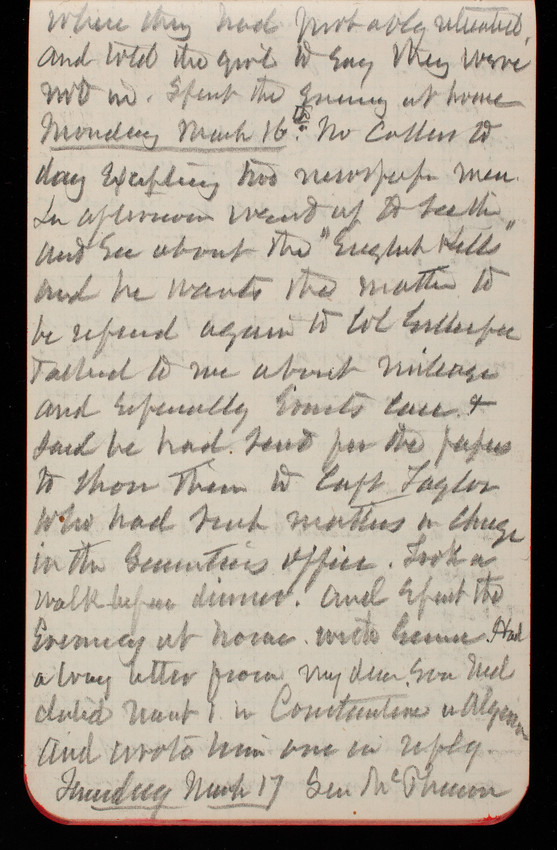 where they had probably retreated,
and told the girl to say they were
not in. Spent the evening at home
Monday March 16th. No callers to
day excepting two newspaper men.
In afternoon went up to see the
and see about the "English Hills"
and he wants the matter to
be referred again to Col Gillespie
Talked to me about mileage
and especially case. &
said he had sent for the papers
to show them to Capt Taylor
who had such matters in charge
in the Secretaries office. Took a
walk before dinner. And spent the
Evening at home. Had
a long letter from my dear son Ned
dated March 1 in Constantine in Algeria
and wrote him one in reply.
Tuesday March 17 Gen